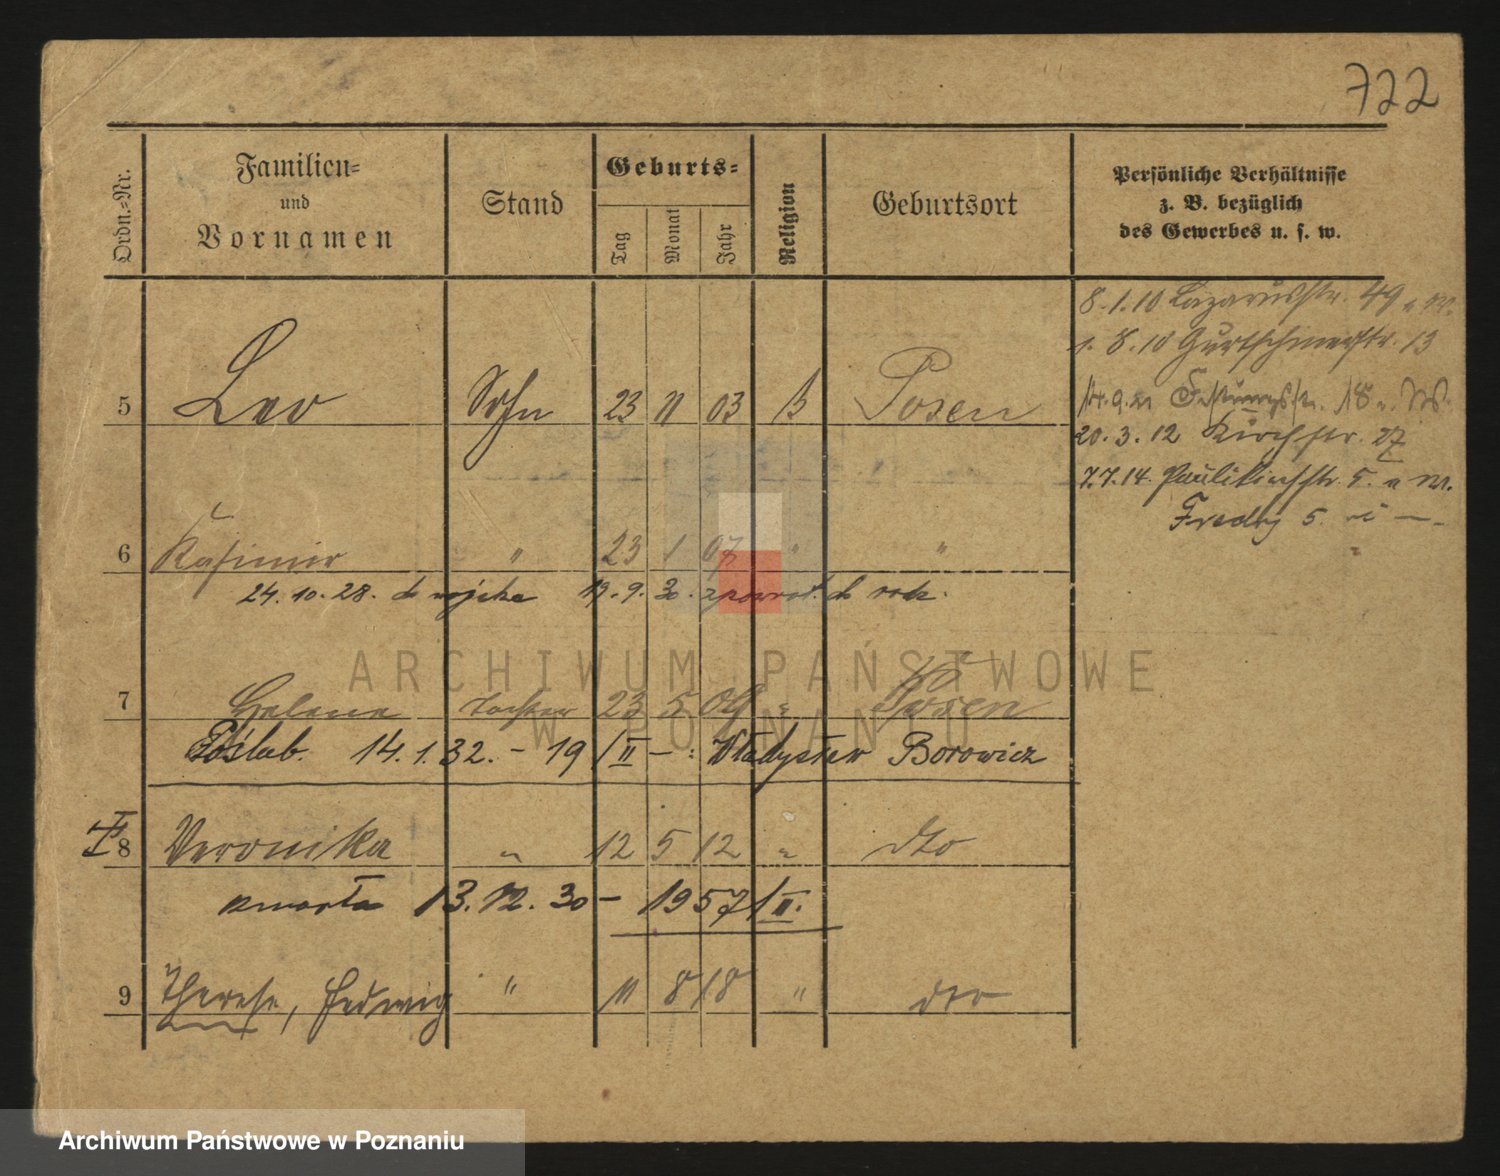 722
Ordn.-Nr.
Familien-
und
Vornamen
Stand
Geburts-
Tag
Monat
Jahr
Religion
Geburtsort
Persönliche Verhältnisse
z. B. bezüglich
des Gewerbes u. s. w.
8.1.10 Lazarusstr. 49
1. 8.10 Gurtschinerstr. 13
Festungsstr. 18
20.3.12 Kirchstr. 27
7.7.14. Paulikirchstr. 5.
Fredry 5.
5 Leo Sohn 23 11 03 Posen
6 Kasimir " 23 1 07 " "
24.10.28. do wojska 19.9.30. zpowrot.
7 Helene Tochter 23 5 09 " Posen
Poślub. 14.1.32. - 19 /II - : Władysław Borowicz
8 Veronika " 12 5 12 " dto
zmarła 13.12.30 - 1957/II.
9 Therese, Hedwig " 11 8 18 " dto
ARCHIWUM PAŃSTWOWE
W POZNANIU
Archiwum Państwowe w Poznaniu